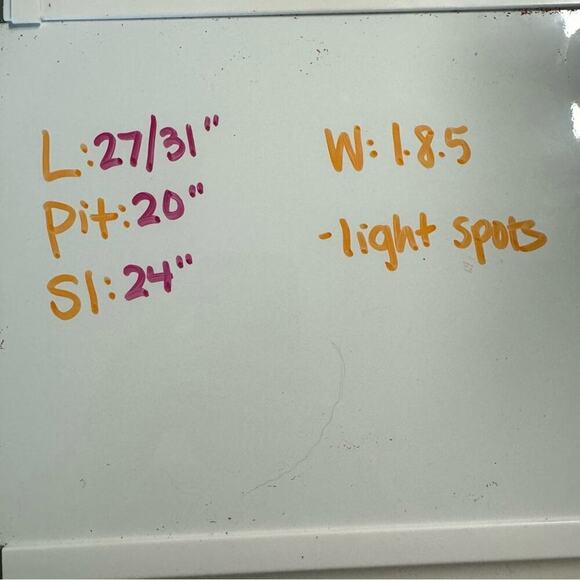 L: 27/31"
Pit: 20"
Sl: 24"
W: 1.8.5
-light spots